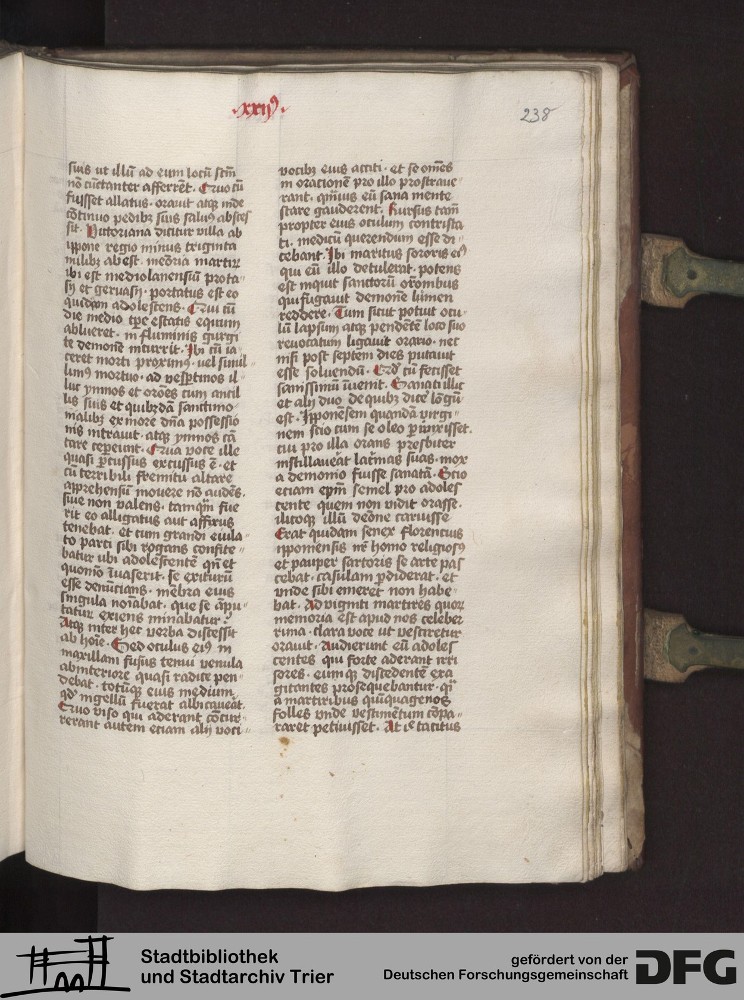 .xxijꝰ.
238
suis ut illū ad eum locū sctm̄
nō cūctanter afferrēt. Quo cū
fuisset allatus. orauit atqꝫ inde
cōtinuo pedibꝫ suis saluꝰ absces
sit. Victoriana dicitur villa ab
ippone regio minus triginta
milibꝫ abest. memoria martirū
ibi est mediolanensiū prota-
sij et geruasij. portatus est eo
quidam adolescens. Qui cū
die medio tꝑe estatis equum
ablueret. in fluminis gurgi
te demonē incurrit. Ibi cū ia-
ceret morti proximꝰ. vel simil-
limꝰ mortuo. ad vespertinos il-
luc ymnos et orōes cum ancil
lis suis et quibꝫdā sanctimo-
nialibꝫ ex more dn̄a possessio
nis intrauit. atqꝫ ymnos cā
tare ceperunt. Qua voce ille
quasi ꝑcussus excussus ē. et
cū terribili fremitu altare
apprehensū mouere nō audēs.
siue non valens. tamqm̄ fue
rit eo alligatus aut affixus
tenebat. et cum grandi eiula-
tu parci sibi rogans confite-
batur ubi adolescentē qn̄ et
quomō īuaserit. se exiturū
esse denūcians. mēbra eius
singula noīabat. que se āpu-
tatur exiens minabatur.
Atqꝫ inter hec verba discessit
ab hoīe. Sed oculus eiꝰ in
maxillam fusus tenui venula
ab interiore quasi radice pen-
debat. totūqꝫ eius medium
qd' nigellū fuerat albicauerat.
Quo viso qui aderant cōcur-
rerant autem eciam alij voci-
vocibꝫ eius acciti. et se om̄es
in oracionē pro illo prostraue-
rant. qm̄uis eū sana mente
stare gauderent. Rursus tam̄
propter eius oculum contrista
ti. medicū querendum esse di-
cebant. Ibi maritus sororis eiꝰ
qui eū illo detulerat. potens
est inquit sanctorū orōnibus
qui fugauit demonē lumen
reddere. Tum sicut potuit ocu-
lū lapsum atqꝫ pendētē loco suo
reuocatum ligauit orario. nec
nisi post septem dies putauit
esse soluendū. Qd' cū fecisset
sanissimū īuenit. Sanati illic
et alij duo de quibꝫ dicē lōgū
est. Ipponēsem quandā virgi-
nem scio cum se oleo ꝑunxisset.
cui pro illa orans presbiter
instillauerat lacrimas suas. mox
a demonio fuisse sanatā. Scio
eciam ep̄m semel pro adoles
cente quem non vidit orasse.
ilicoqꝫ illū demōe caruisse
Erat quidam senex florencius
ipponensis nr̄ homo religiosꝰ
et pauper sartoris se arte pas
cebat. casulam ꝑdiderat. et
vnde sibi emeret non habe-
bat. Ad viginti martires quorꝫ
memoria est apud nos celeber
rima. clara voce ut vestiretur
orauit. Audierunt eū adoles
centes qui forte aderant irri
sores. eumqꝫ discedentē exa
gitantes prosequebantur. qi
a martiribus quinquagenos
folles vnde vestimētum cōpa-
raret petiuisset. At ille tacitus
Stadtbibliothek
und Stadtarchiv Trier
gefördert von der
Deutschen Forschungsgemeinschaft
DFG